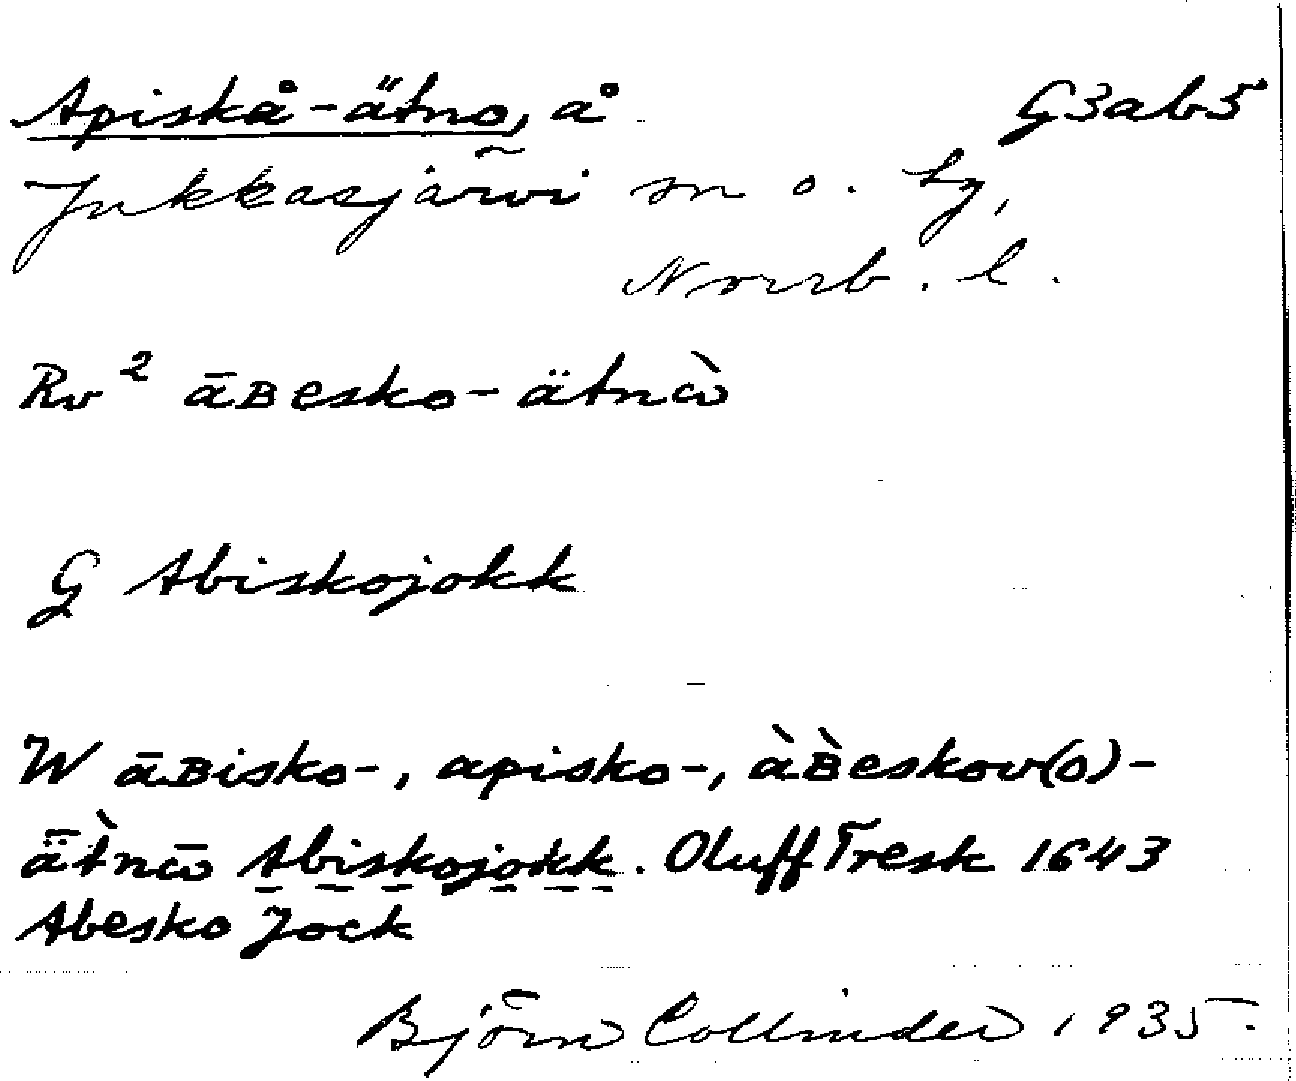 Apiskå-ätno, å G3ab5
Jukkasjärvi sn o. tg,
Norrb. l.
Rv² āʙesko-ätnὼ
G Abiskojokk
W āʙisko-, apisko-, àʙ̀eskov(o)-
ǟt̀nω̄ Abiskojokk. Oluff Tresk 1643
Abesko Jock
Björn Collinder 1935.